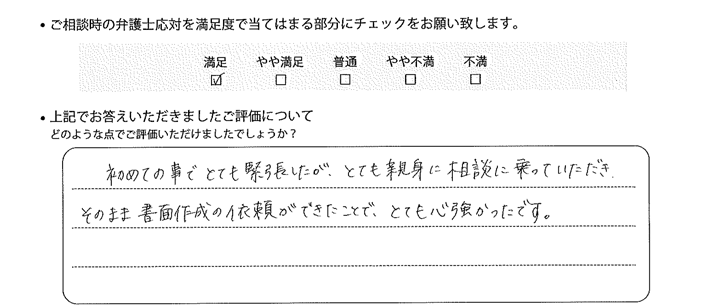 • ご相談時の弁護士応対を満足度で当てはまる部分にチェックをお願い致します。
満足 やや満足 普通 やや不満 不満
☑ □ □ □ □
• 上記でお答えいただきましたご評価について
どのような点でご評価いただけましたでしょうか？
初めての事でとても緊張したが、とても親身に相談に乗っていただき
そのまま書面作成の依頼ができたことで、とても心強かったです。